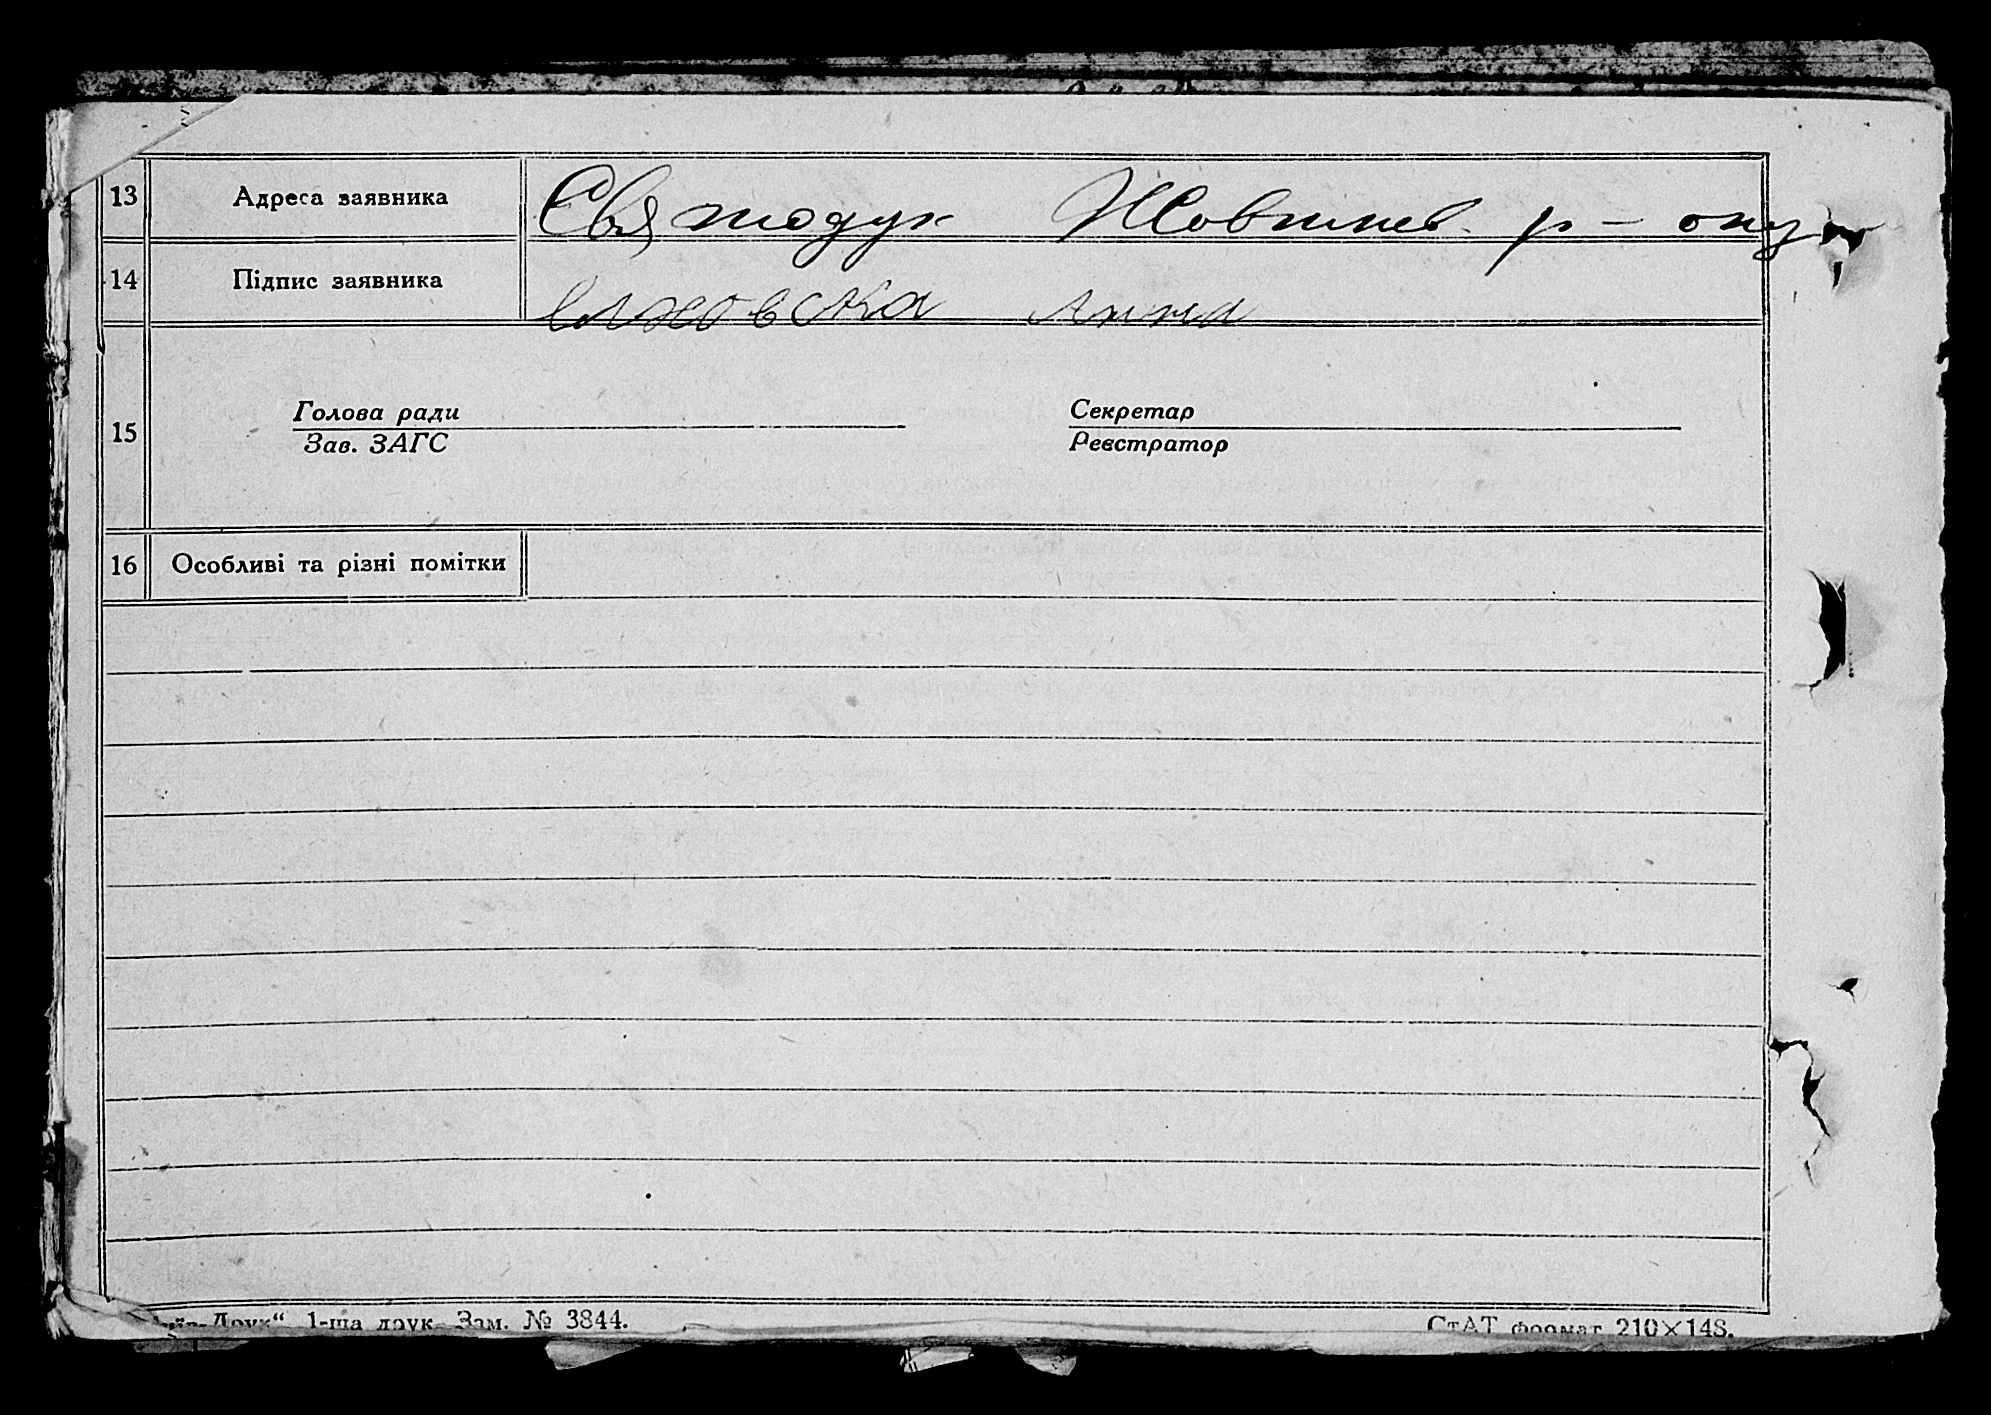 13 Адреса заявника Святодух Жовтнев. р-ону
14 Підпис заявника Анна
15 Голова ради Секретар
Зав. ЗАГС Реєстратор
16 Особливі та різні помітки
Друк“ 1-ша друк. Зам. № 3844. СтАТ формат 210×148.